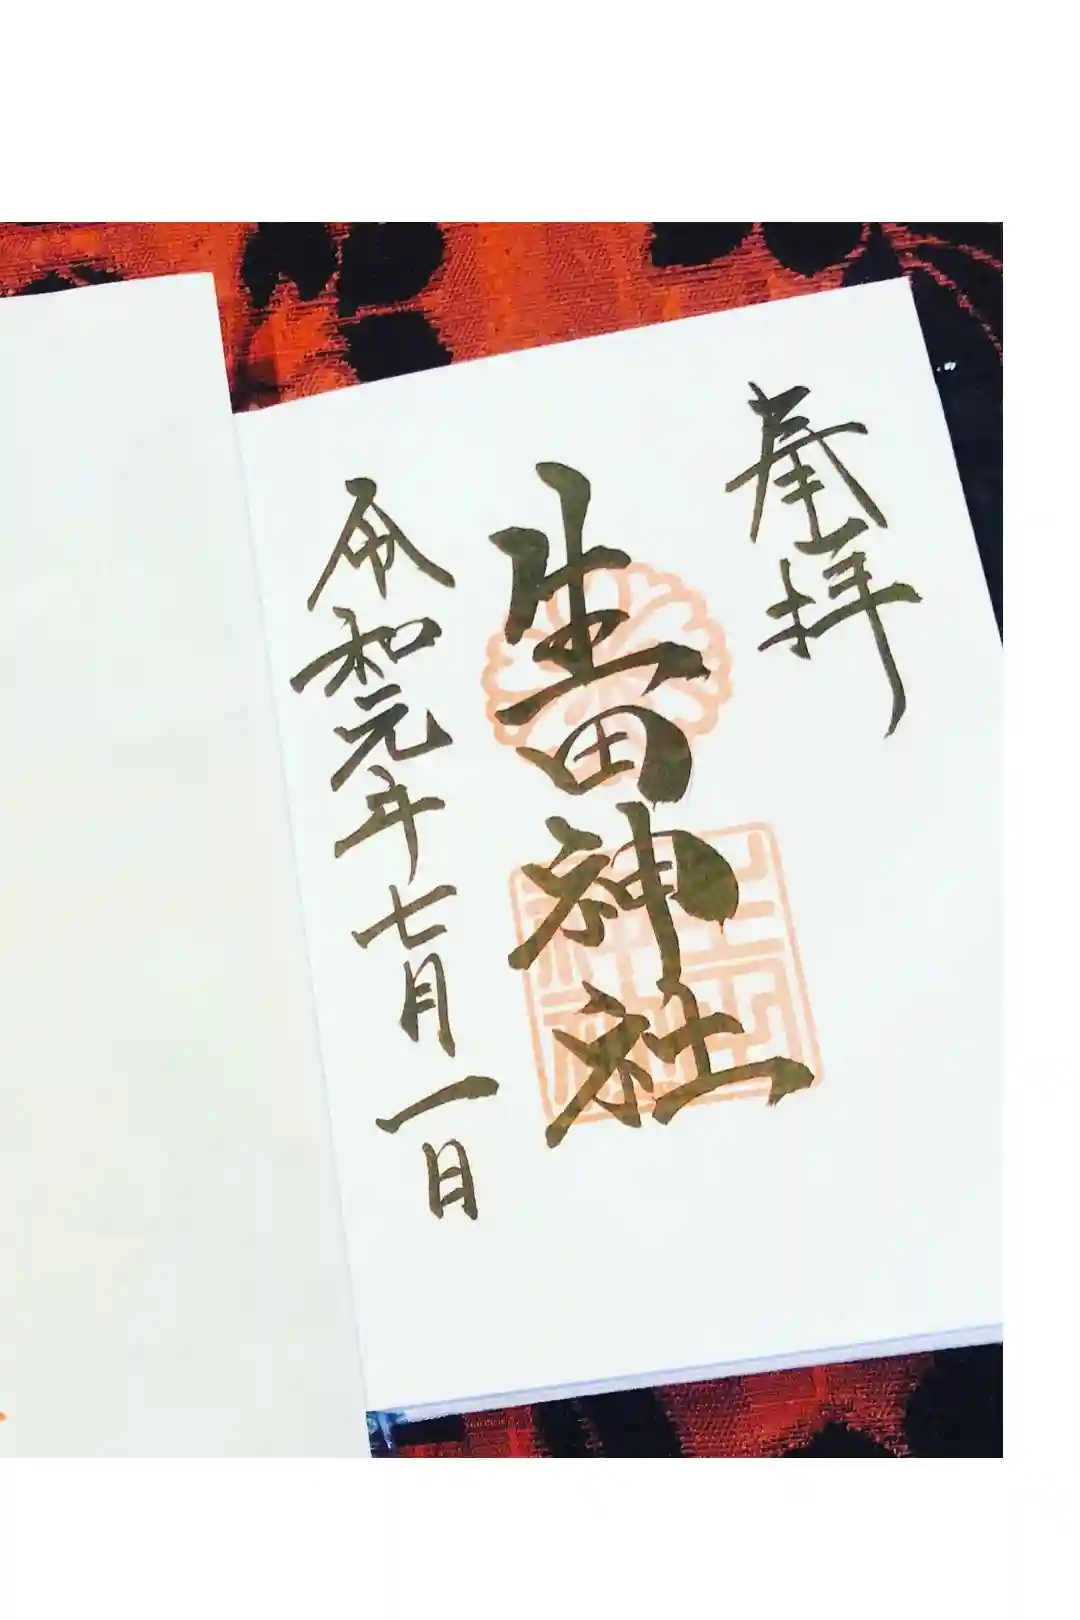 奉拝
生田神社
令和元年七月一日